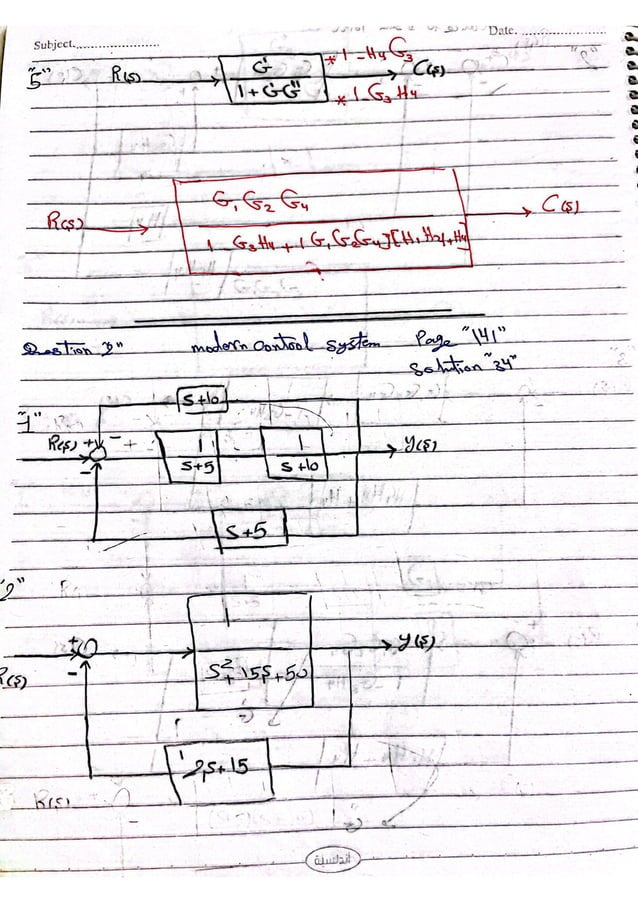 Subject.
Date.
"5" R(s) G' C(s)
1+G'G"
* 1-H4G3
* 1-G3H4
R(s) G1 G2 G4 C(s)
1 G3H4 + 1 G1G2G4][H1H2/+H4]
?
Question 2" modern control system Page "141"
Solution "34"
"1"
S+10
R(s) + - +
1
S+5
1
S+10
Y(s)
-
S+5
"2"
+
R(s)
-
1
S²+15S+50
Y(s)
2S+15
R(s)
أندلسية